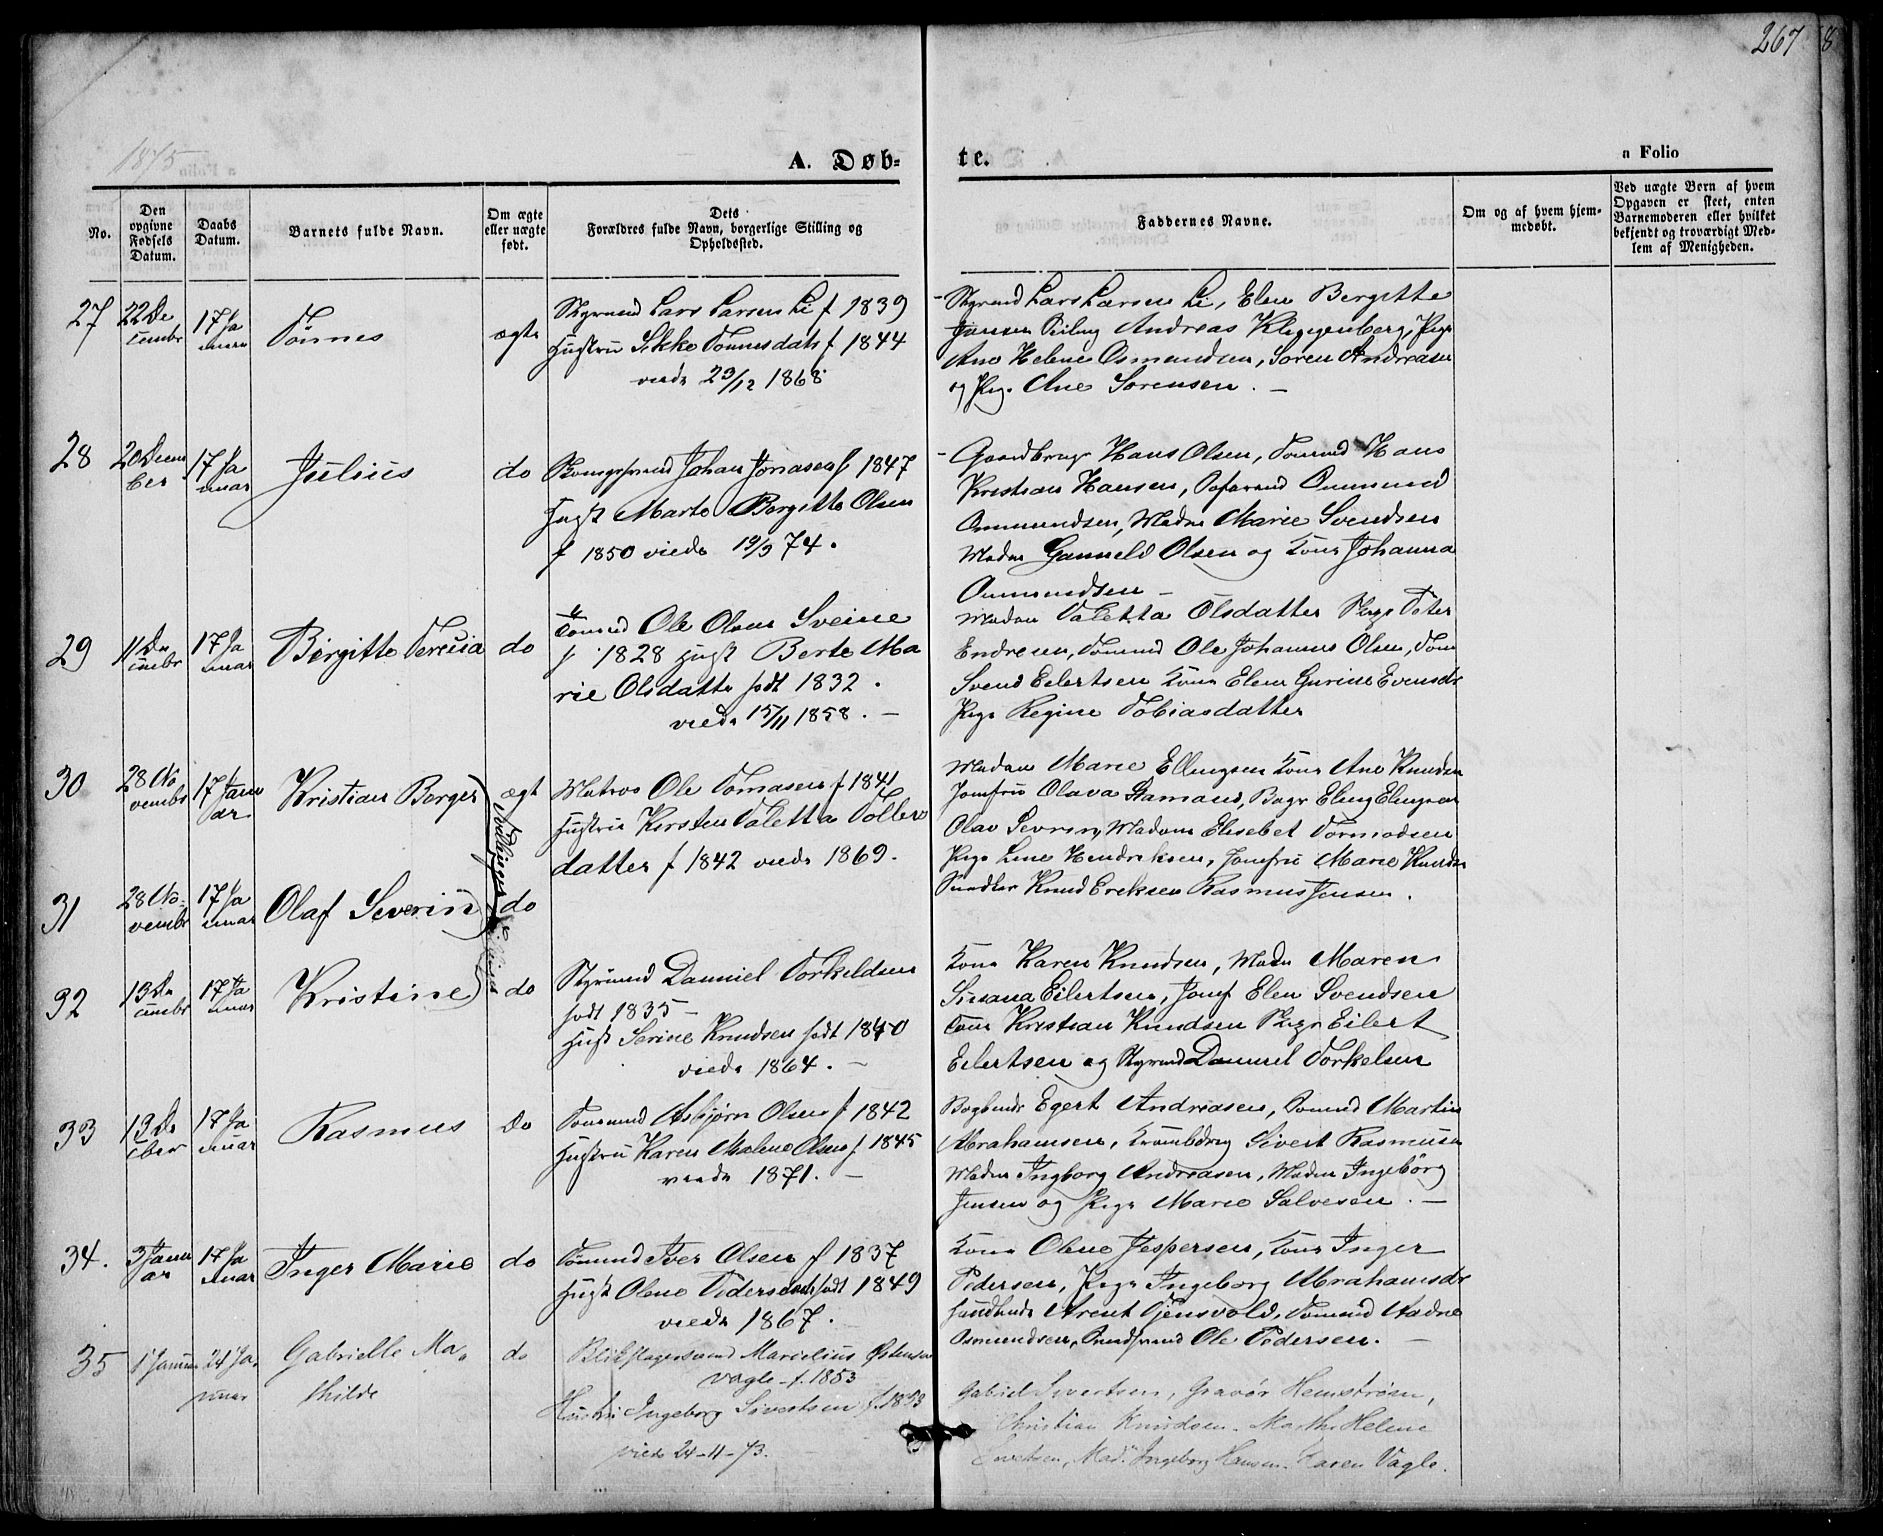 267
8
1875
A. Døb-
te.
a Folio
No.
Den
opgivne
Fødsels
Datum.
Daabs
Datum.
Barnets fulde Navn.
Om ægte
eller uægte
født.
Dets
Forældres fulde Navn, borgerlige Stilling og
Opholdssted.
Faddernes Navne.
Om og af hvem hjem-
medøbt.
Ved uægte Børn af hvem
Opgaven er skeet, enten
Barnemoderen eller hvilket
bekjendt og troværdigt Med-
lem af Menigheden.
27
22 De
cembr
17 Ja
nuar
Tønnes
ægte
Styrmd Lars Larsen Li f 1839
Hustru Sikke Tønnesdatt f 1844
viede 29/12 1868
Styrmd Lars Larsen Li, Elen Bergitte
Andreas Kleppenberg, Pige
Ane Helene Osmundsen, Søren Andreasen
og Pig. Ane Sørensen. –
28
20 Decem
ber
17 Ja
nuar
Julius
do
Johan Jonasen f 1847
Hust Marte Bergitte Olsen
f 1850 viede 19/3 74.
Gaardbrug Hans Olsen, Tømmd Hans
Kristian Hansen, Søfarend Ommund
Ommundsen, Madm Marie Svendsen
Madm Gunneld Olsen og Kone Johanna
Ommundsen –
29
11 De
cembr
17 Ja
nuar
Birgitte Teresia
do
Tømmd Ole Olsen Sveine
f 1828 Hust Berte Ma
rie Olsdatte født 1832.
viede 15/11 1858. –
Madam Valetta Olsdatter Pige
Endresen, Tømmd Ole Johannes Olsen, Tøm
Svend Eilertsen Kone Elen Gurine Evensdt
Pige Regine Tobiasdatter
30
28 No
vembr
17 Janu
ar
Kristian Berger
ægt
Tvillinger
Matros Ole Tomasen f 1841
Hustru Kirsten Valetta Tollev
datter f 1842 viede 1869.
Madam Marie Ellingsen Kone Ane Knudsen
Jomfru Olava Aamand, Bager Eling Elingsen
Olav Severin, Madam Elisebet Tormodsen
Pige Line Hendriksen, Jomfru Marie Knudsen
Snedker Knud Ereksen Rasmus Jensen.
31
28 No-
vembr
17 Ja
nuar
Olaf Severin
do
32
13 De
cembr
17 Ja
nuar
Kristine
do
Styrmd Danniel Torkeldsen
født 1835 –
Hust Serine Knudsen født 1840
viede 1864. –
Kone Karen Knudsen, Madm Maren
Susana Eilertsen, Jomf Elen Svendsen
Tøm Kristian Knudsen Pige Eilert
Eilertsen og Styrmd Danniel Torkelsen
33
13 De
cber
17 Ja
nuar
Rasmus
do
Tømmand Asbjørn Olsen f 1842
Hustru Karen Malene Olsen f 1845
viede 1871. –
Bogbindr Egert Andreasen, Tømmd Martin
Abrahamsen, Sivert Rasmusen
Madm Ingborg Andreasen, Madm Ingebørg
Jensen og Pige Marie Salvesen. –
34.
3 Janu
ar
17 Ja
nuar
Inger Marie
do
Tømmd Iver Olsen f 1837
Hust Olene Pedersdatt født 1849
viede 1867.
Kone Olene Jespersen, Kone Inger
Pedersen, Pige Ingeborg Abrahamsdt
Arent Tjensvold, Tømmd Aadne
Osmundsen, Ole Pedersen. –
35
1 Januar
24 Ja-
nuar
Gabrielle Ma-
thilde
do
Blikslagersvend Marcelius Østensen
Vagle f. 1853
Hustru Ingeborg Sivertsen f. 1853
viede 24-11-73.
Gabriel Sivertsen, Gravør Hemstrøm,
Christian Knudsen. Marthe Helene
Sivertsen, Mad. Ingeborg Hansen. Karen Vagle.